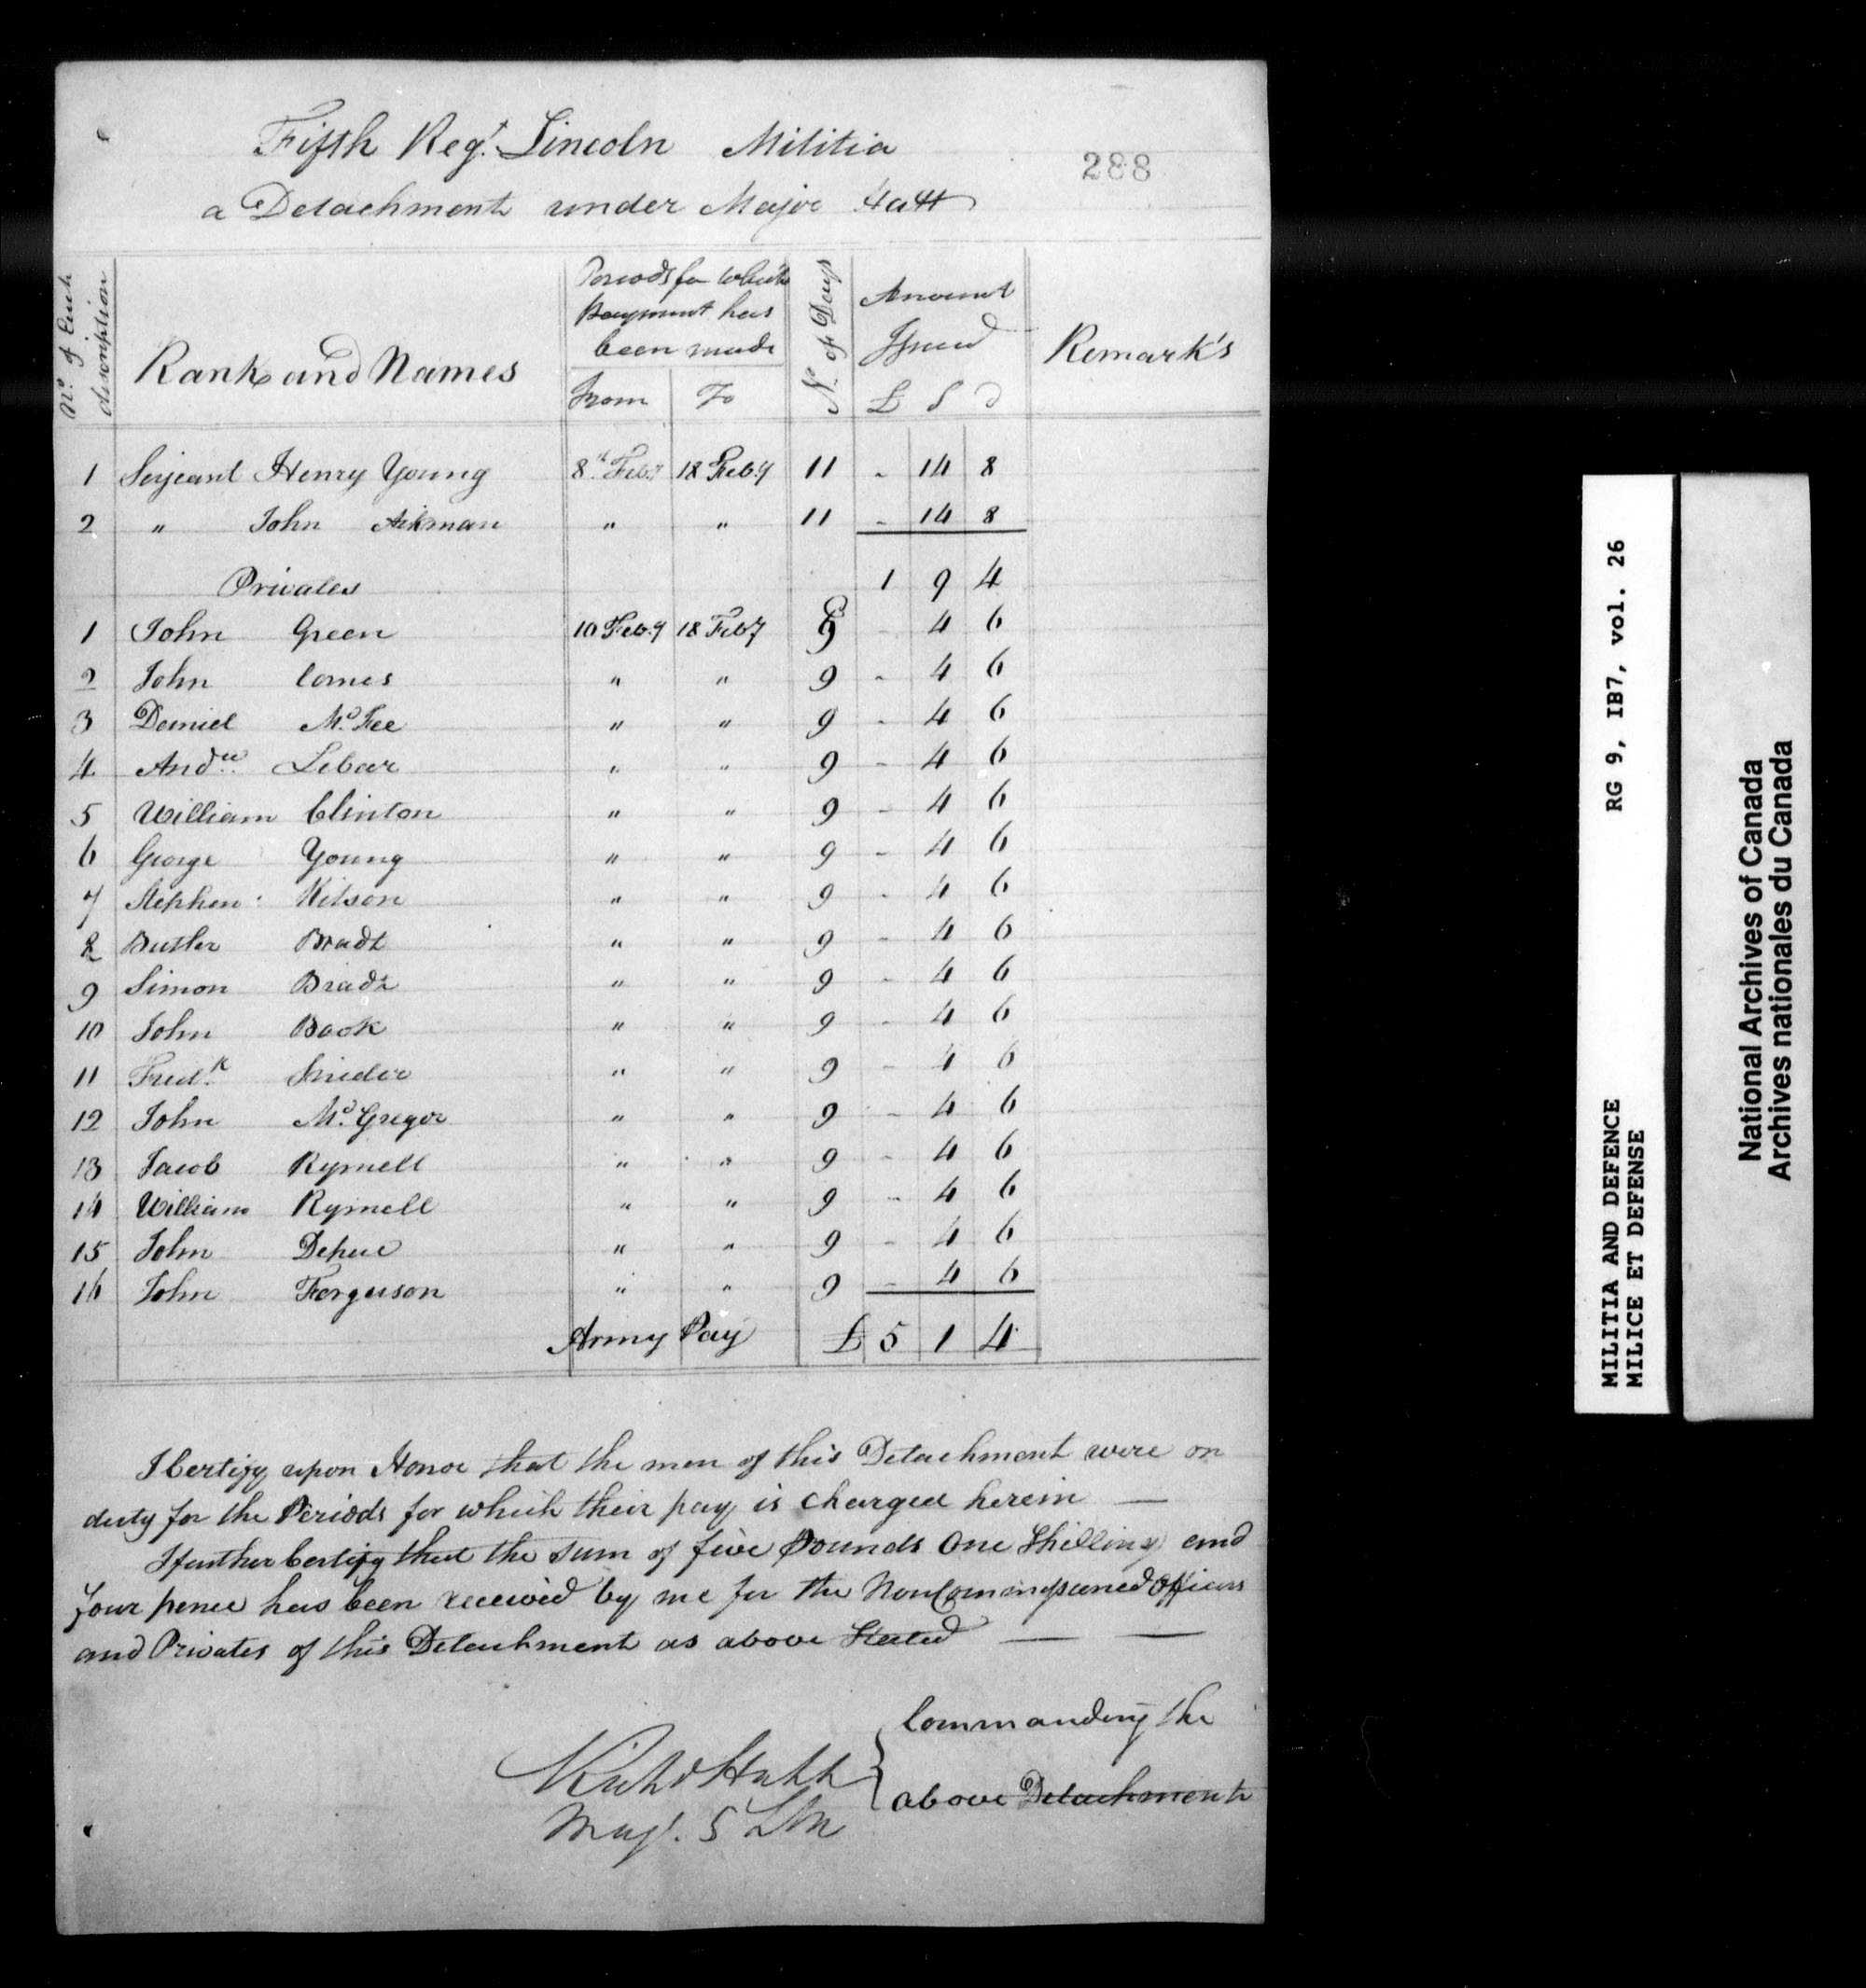 Fifth Reg.t Lincoln Militia
a Detachment under Major Hatt
288
No. of Each discription
Rank and Names
Periods for which payment has been made
From To
No. of Days
Amount Issued
£ S D
Remark's
1 Serjeant Henry Young 8th Feb.y 18 Feb.y 11 - 14 8
2 " John Aikman " " 11 - 14 8
Privates 1 9 4
1 John Green 10 Feb.y 18 Feb.y 9 - 4 6
2 John Comes " " 9 - 4 6
3 Daniel McFee " " 9 - 4 6
4 Andw. Lebar " " 9 - 4 6
5 William Clinton " " 9 - 4 6
6 George Young " " 9 - 4 6
7 Stephen Kitson " " 9 - 4 6
8 Butler Bradt " " 9 - 4 6
9 Simon Bradt " " 9 - 4 6
10 John Book " " 9 - 4 6
11 Fred.k Snider " " 9 - 4 6
12 John McGregor " " 9 - 4 6
13 Jacob Rymell " " 9 - 4 6
14 William Rymell " " 9 - 4 6
15 John Depue " " 9 - 4 6
16 John Ferguson " " 9 - 4 6
Army Pay £ 5 1 4
I Certify upon Honor that the men of this Detachment were on
duty for the Periods for which their pay is Charged herein —
I further Certify that the sum of five Pounds One Shilling and
four pence has been received by me for the Non Commissioned Officers
and Privates of this Detachment as above Stated — —
Richd Hatt
Maj. 5 L M
Commanding the
above Detachment
RG 9, IB7, vol. 26
MILITIA AND DEFENCE
MILICE ET DEFENSE
National Archives of Canada
Archives nationales du Canada